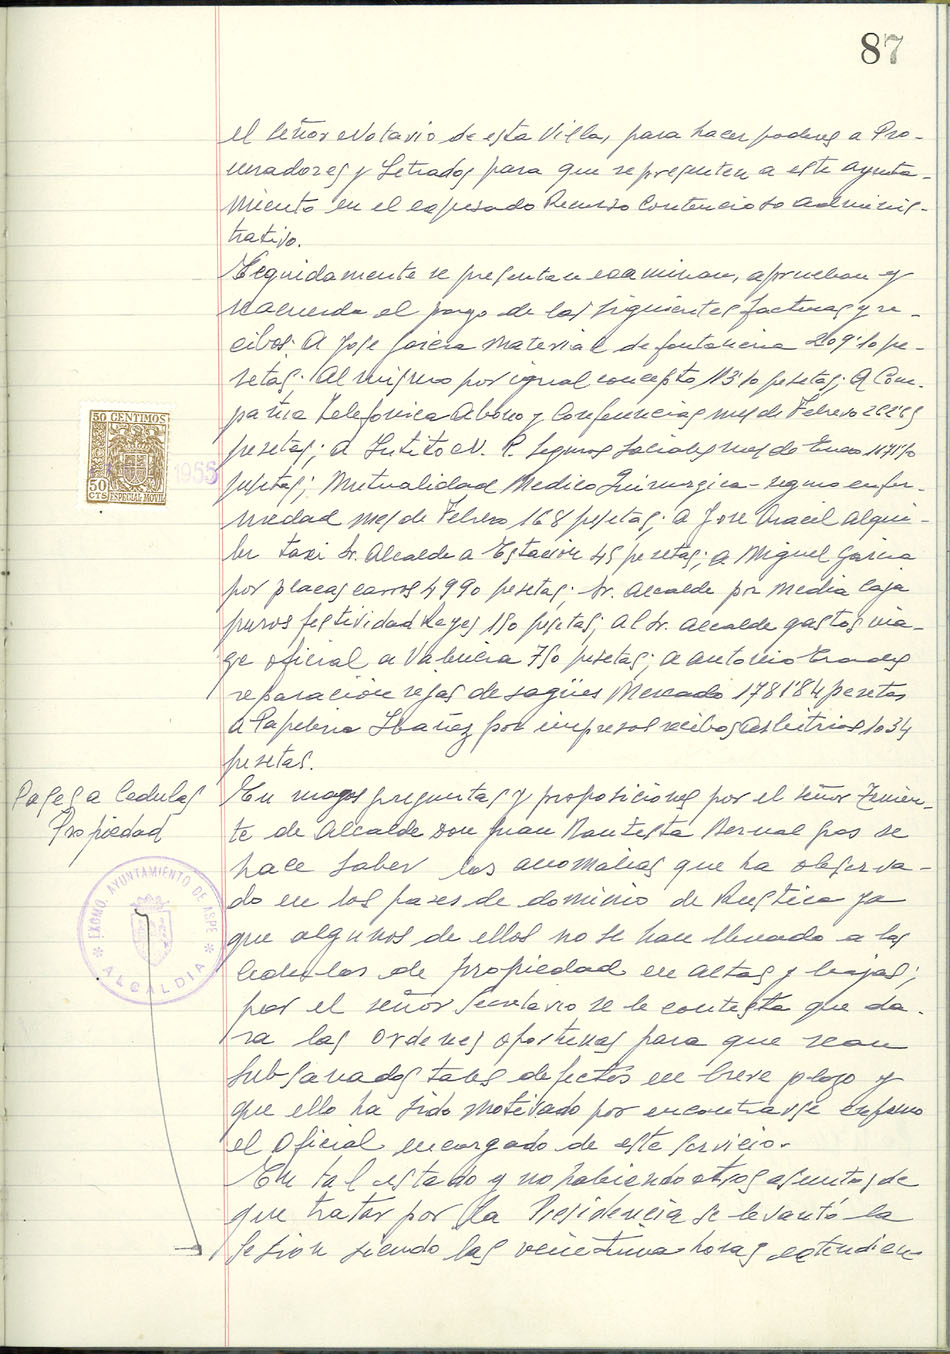 87
el señor Notario de esta Villa, para hacer poderes a Pro-
curadores y Letrados para que representen a este Ayunta-
miento en el expresado Recurso Contencioso adminis-
trativo.
Seguidamente se presentan examinan, aprueban y
se acuerda el pago de las siguientes facturas y re-
cibos: A Jose Garcia material de fontaneria 209'10 pe-
setas; Al mismo por igual concepto, 113'10 pesetas; A Com-
pañia Telefonica Abono y Conferencias mes de Febrero
pesetas; a Instito N. P. Seguros Sociales mes de Enero
pesetas; Mutualidad Medico Quirurgica-seguro enfer-
medad mes de Febrero 168 pesetas; a Jose alqui-
ler taxi Sr. Alcalde a Estación 45 pesetas; a Miguel Garcia
por placas carros 4990 pesetas; Sr. Alcalde por media caja
puros festividad Reyes 150 pesetas; al Sr. Alcalde gastos via-
ge oficial a Valencia 750 pesetas; a Antonio
reparación rejas desagües Mercado 178'84 pesetas
A Papeleria Ibañez por impresos recibos arbitrios 1034
pesetas.
50 CENTIMOS
50
CTS ESPECIAL MOVIL
1955
Pases a Cedulas
Propiedad
En ruegos preguntas y proposiciones por el señor Tenien-
te de Alcalde Don Juan Bautista Bernal Gras se
hace saber las anomalias que ha observa-
do en los pases de dominio de Rustica ya
que algunos de ellos no se han llevado a las
cedulas de propiedad en altas y bajas;
por el señor Secretario se le contesta que da-
ra las ordenes oportunas para que sean
subsanados tales defectos en breve plazo y
que ello ha sido motivado por encontrarse enfermo
el Oficial encargado de este servicio.
En tal estado y no habiendo otros asuntos de
que tratar por la Presidencia se levantó la
sesion siendo las veintiuna horas extendien-
EXCMO. AYUNTAMIENTO DE ASPE
* ALCALDIA *